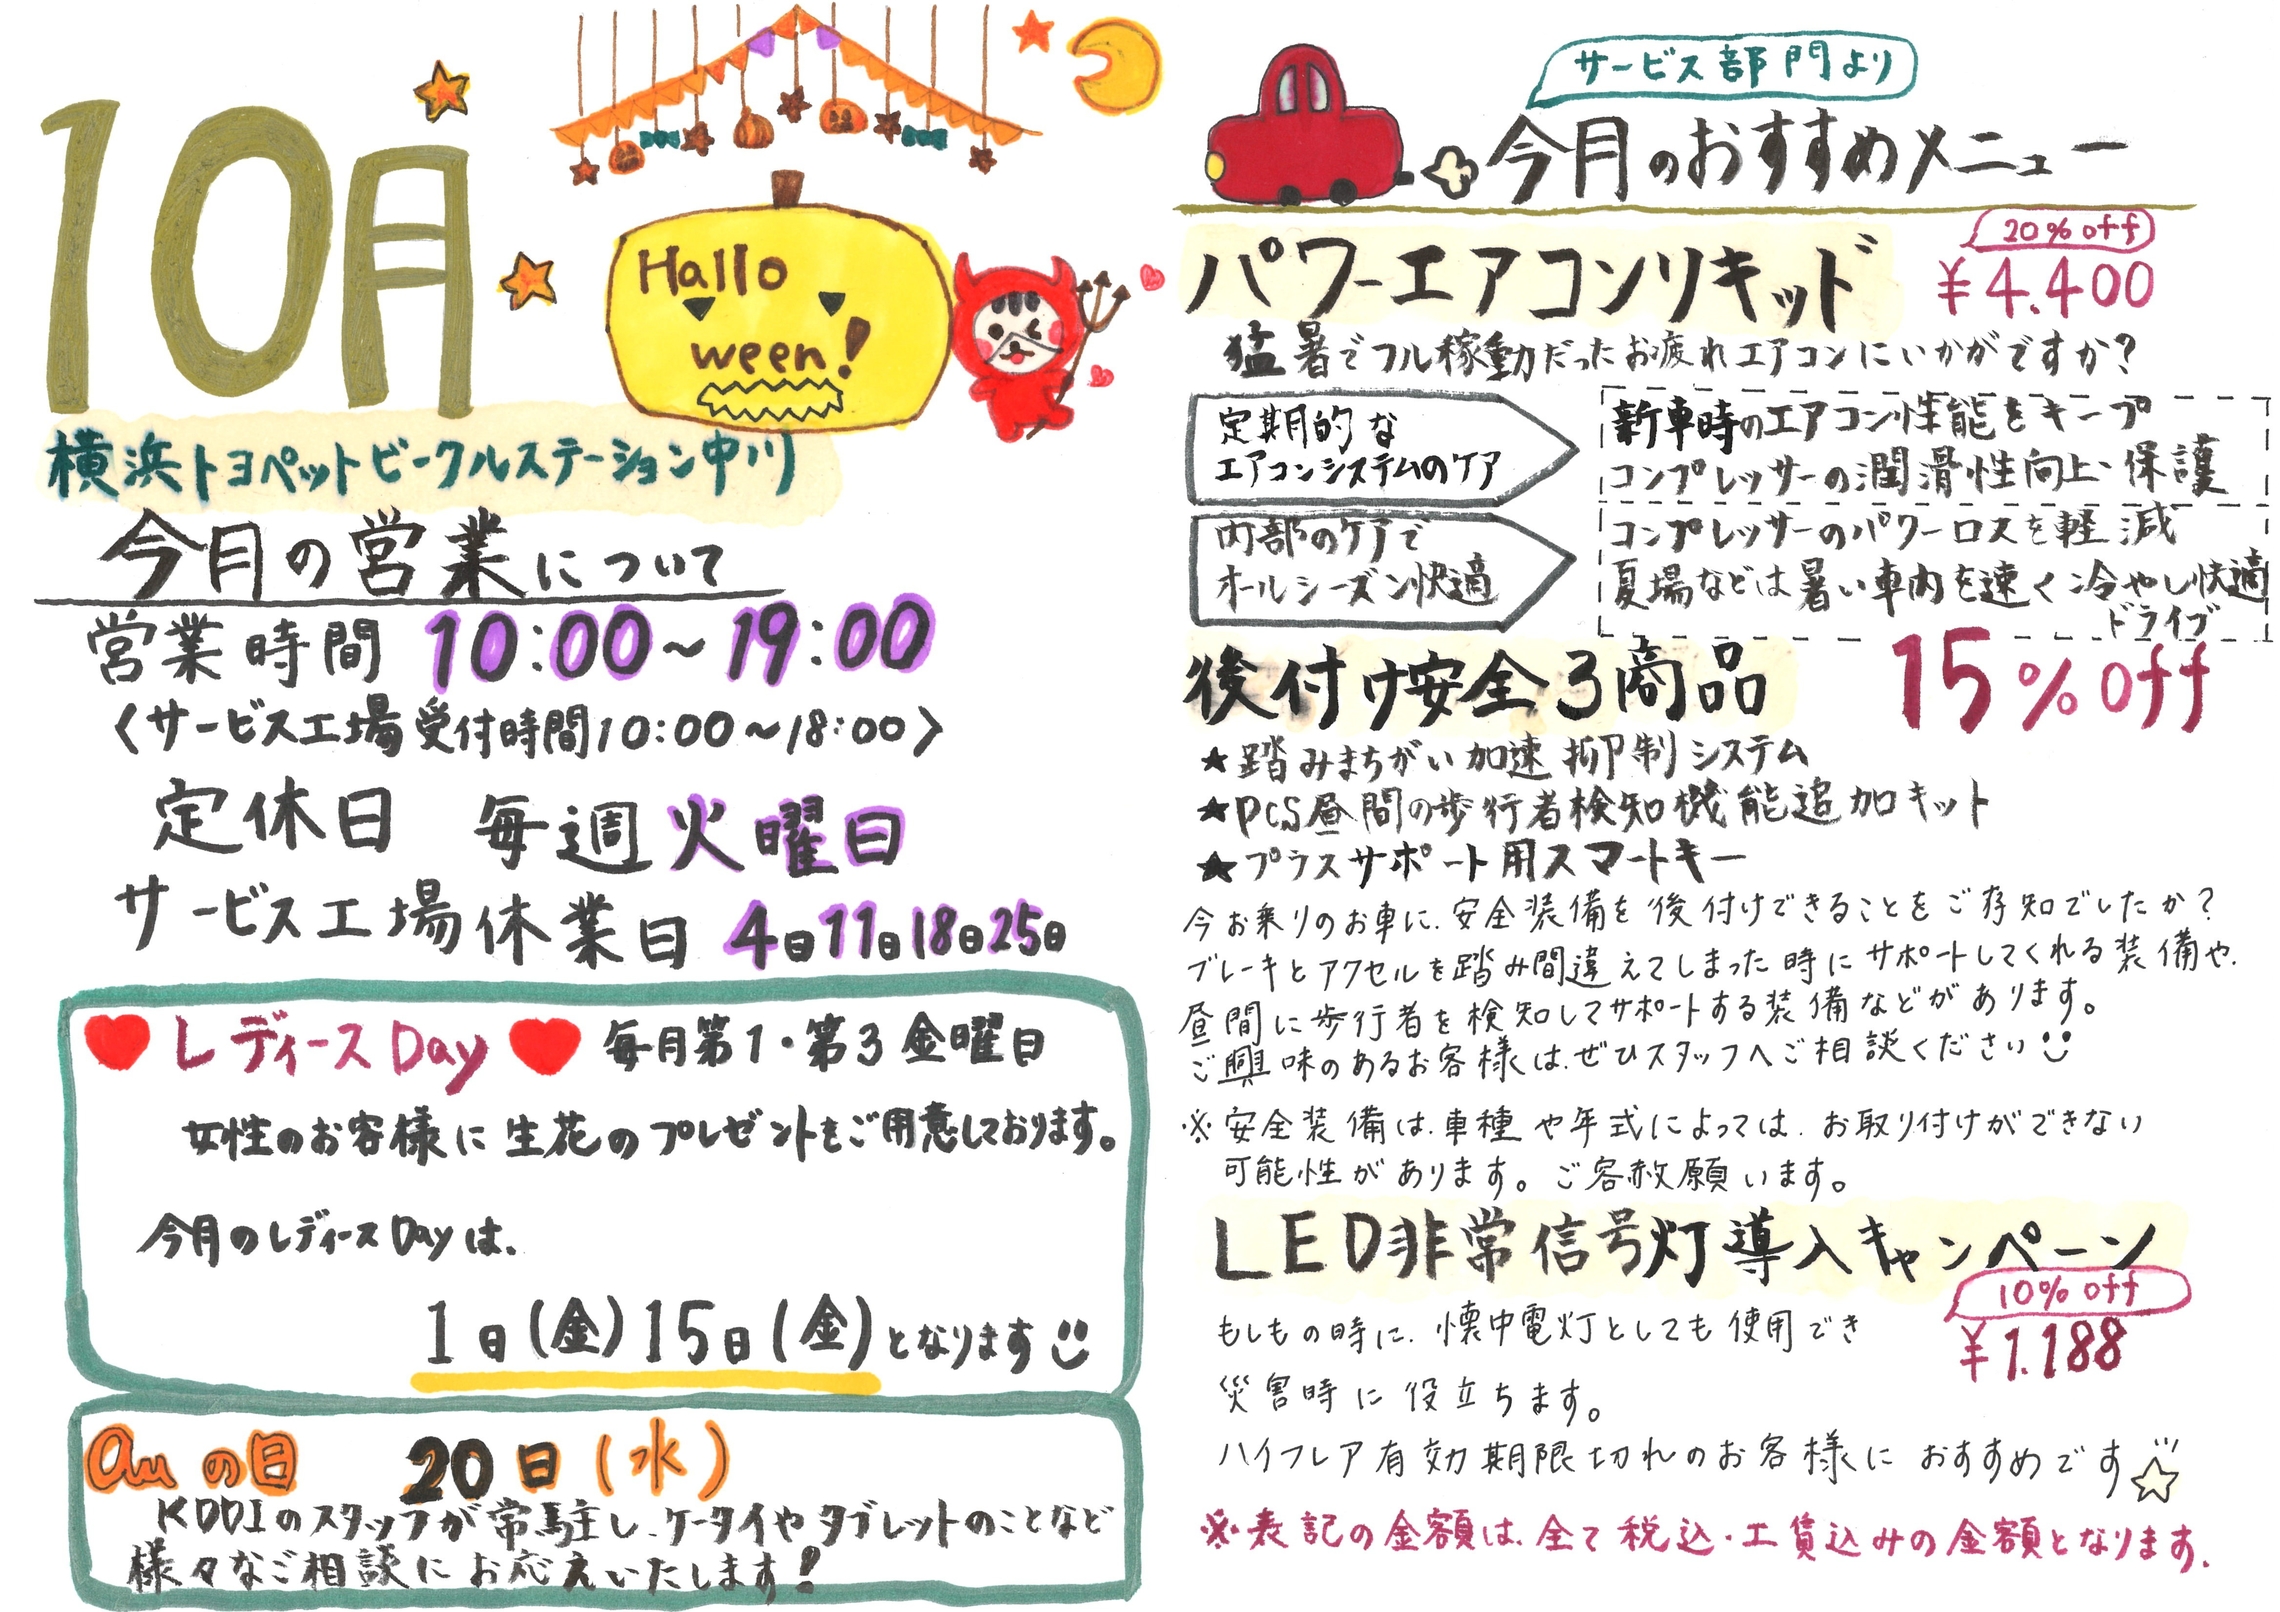 10月
Hallo
ween!
横浜トヨペットビークルステーション中川
今月の営業について
営業時間 10:00~19:00
〈サービス工場受付時間10:00~18:00〉
定休日 毎週火曜日
サービス工場休業日 4日11日18日25日
レディースDay 毎月第1・第3金曜日
女性のお客様に生花のプレゼントをご用意しております。
今月のレディースDayは、
1日(金)15日(金)となります
auの日 20日(水)
KDDIのスタッフが常駐し、ケータイやタブレットのことなど
様々なご相談にお応えいたします!
サービス部門より
今月のおすすめメニュー
パワーエアコンリキッド
20%off
¥4.400
猛暑でフル稼動だったお疲れエアコンにいかがですか?
定期的な
エアコンシステムのケア
新車時のエアコン性能をキープ
コンプレッサーの潤滑性向上、保護
内部のケアで
オールシーズン快適
コンプレッサーのパワーロスを軽減
夏場などは暑い車内を速く冷やし快適
ドライブ
後付け安全3商品 15%off
★踏みまちがい加速抑制システム
★PCS昼間の歩行者検知機能追加キット
★プラスサポート用スマートキー
今お乗りのお車に、安全装備を後付けできることをご存知でしたか?
ブレーキとアクセルを踏み間違えてしまった時にサポートしてくれる装備や、
昼間に歩行者を検知してサポートする装備などがあります。
ご興味のあるお客様は、ぜひスタッフへご相談ください
※安全装備は、車種や年式によっては、お取り付けができない
可能性があります。ご容赦願います。
LED非常信号灯導入キャンペーン
10%off
¥1.188
もしもの時に、懐中電灯としても使用でき
災害時に役立ちます。
ハイフレア有効期限切れのお客様におすすめです☆
※表記の金額は、全て税込・工賃込みの金額となります。